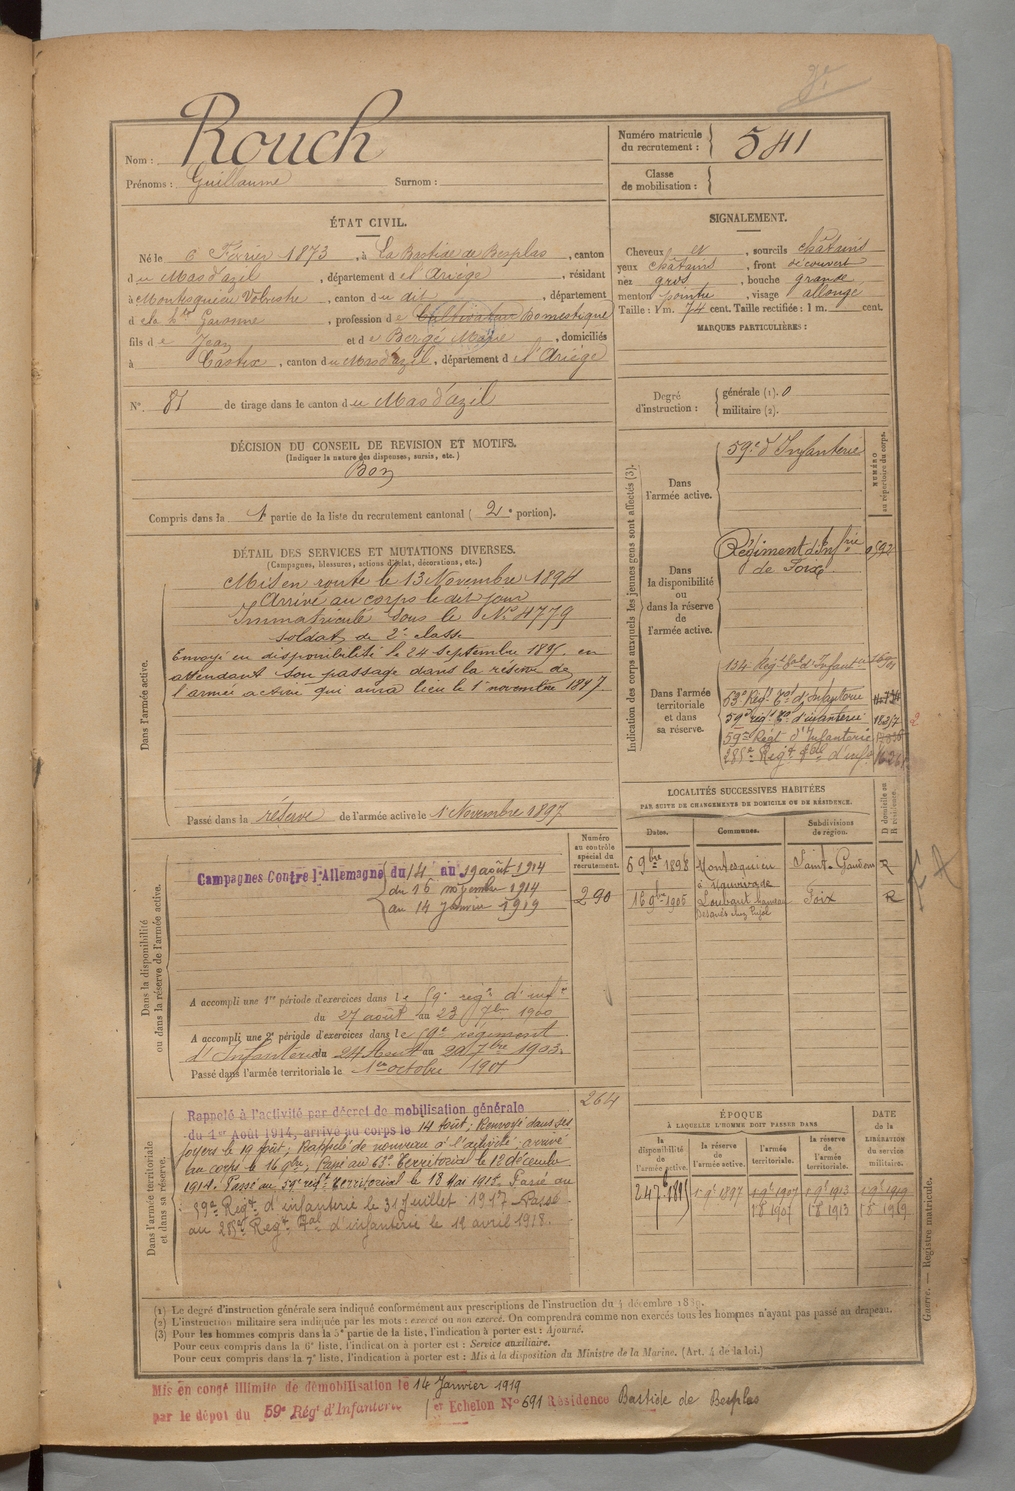 Nom : Rouch
Prénoms : Guillaume Surnom :
Numéro matricule du recrutement : 541
Classe de mobilisation :
ÉTAT CIVIL.
Né le 6 Février 1873, à La Bastide de Besplas, canton
du Mas d'azil, département de l'Ariège, résidant
à Montesquieu Volvestre, canton du dit, département
de la Hte Garonne, profession de Cultivateur Domestique
fils de Jean et de Bergé Marie, domiciliés
à Castex, canton du Mas d'azil, département de l'Ariège
No. 81 de tirage dans le canton du Mas d'azil
SIGNALEMENT.
Cheveux et, sourcils châtains
yeux châtains, front découvert
nez gros, bouche grande
menton pointu, visage allongé
Taille : 1 m. 74 cent. Taille rectifiée : 1 m. cent.
MARQUES PARTICULIÈRES :
Degré d'instruction : générale (1). 0
militaire (2).
DÉCISION DU CONSEIL DE REVISION ET MOTIFS.
(Indiquer la nature des dispenses, sursis, etc.)
Bon
Compris dans la 1e partie de la liste du recrutement cantonal (2e portion).
DÉTAIL DES SERVICES ET MUTATIONS DIVERSES.
(Campagnes, blessures, actions d'éclat, décorations, etc.)
Dans l'armée active.
Mis en route le 13 Novembre 1894
Arrivé au corps le dit jour
Immatriculé sous le No 4779
soldat de 2e classe
Envoyé en disponibilité le 24 septembre 1895 en
attendant son passage dans la réserve de
l'armée active qui aura lieu le 1er novembre 1897
Passé dans la réserve de l'armée active le 1er Novembre 1897
Indication des corps auxquels les jeunes gens sont affectés (3).
NUMÉRO au répertoire du corps.
Dans l'armée active.
59e d'Infanterie
Dans la disponibilité ou dans la réserve de l'armée active.
Régiment d'Infrie
de Foix
Dans l'armée territoriale et dans sa réserve.
134 Régt tal d'Infanterie
63e Régt Tal d'Infanterie
59e régt Tal d'infanterie
59e Régt d'Infanterie
285e Régt tal d'infie
LOCALITÉS SUCCESSIVES HABITÉES
PAR SUITE DE CHANGEMENTS DE DOMICILE OU DE RÉSIDENCE.
Dates. Communes. Subdivisions de région. D domicile ou R résidence.
6 9bre 1898 Montesquieu Saint-Gaudens R
16 9bre 1906 Loubaut Foix R
Numéro au contrôle spécial du recrutement.
290
Dans la disponibilité ou dans la réserve de l'armée active.
Campagnes Contre l'Allemagne du 14 au 19 août 1914
du 16 novembre 1914
au 14 janvier 1919
A accompli une 1re période d'exercices dans le 59e régt d'infie
du 27 août au 23 7bre 1900
A accompli une 2e période d'exercices dans le 59e régiment
d'Infanterie du 24 Aout au 20 7bre 1903.
Passé dans l'armée territoriale le 1er octobre 1907
264
Dans l'armée territoriale et dans sa réserve.
Rappelé à l'activité par décret de mobilisation générale
du 1er Août 1914, arrivé au corps le 14 Août; Renvoyé dans ses
foyers le 19 Août; Rappelé de nouveau à l'activité arrivé
au corps le 16 9bre; Passé au 63e Territorial le 12 décembre
1914. Passé au 59e régt territorial le 18 Mai 1915. Passé au
59e Régt d'infanterie le 31 Juillet 1917 Passé
au 285e Régt Tal d'infanterie le 11 avril 1918.
ÉPOQUE
À LAQUELLE L'HOMME DOIT PASSER DANS
DATE de la LIBÉRATION du service militaire.
la disponibilité de l'armée active. la réserve de l'armée active. l'armée territoriale. la réserve de l'armée territoriale.
24 7bre 1895 1 9bre 1897 1 9bre 1907 1 9bre 1913 1 9bre 1919
1 8 1907 1 8 1913 1 8 1919
(1) Le degré d'instruction générale sera indiqué conformément aux prescriptions de l'instruction du 4 décembre 1889.
(2) L'instruction militaire sera indiquée par les mots : exercé ou non exercé. On comprendra comme non exercés tous les hommes n'ayant pas passé au drapeau.
(3) Pour les hommes compris dans la 5e partie de la liste, l'indication à porter est : Ajourné.
Pour ceux compris dans la 6e liste, l'indication à porter est : Service auxiliaire.
Pour ceux compris dans la 7e liste, l'indication à porter est : Mis à la disposition du Ministre de la Marine. (Art. 4 de la loi.)
Guerre. — Registre matricule.
Mis en congé illimité de démobilisation le 14 Janvier 1919
par le dépôt du 59e Régt d'Infanterie 1er Echelon No 691 Résidence Bastide de Besplas